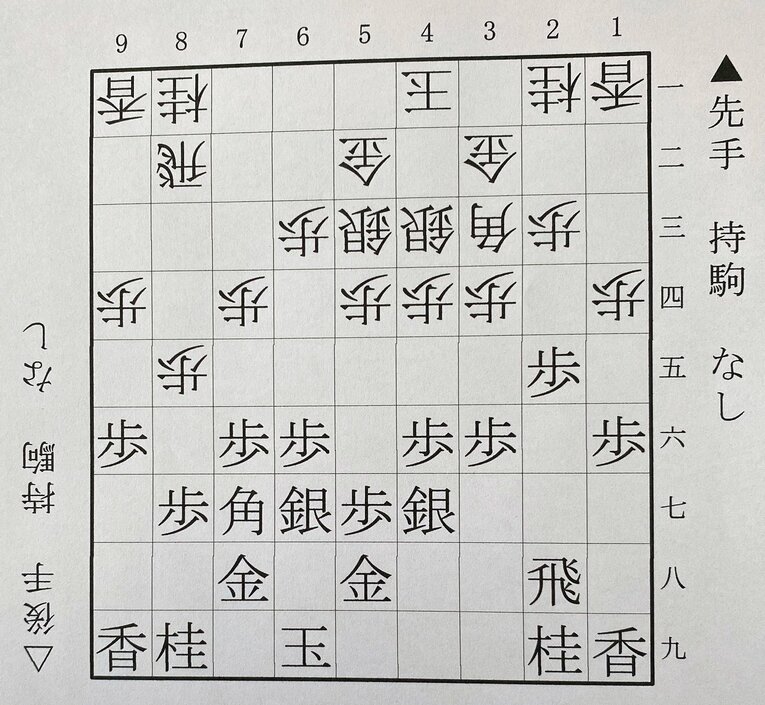 9 8 7 6 5 4 3 2 1
香 桂 王 桂 香 一
飛 金 金 二
歩 銀 銀 角 歩 三
歩 歩 歩 歩 歩 歩 四
歩 歩 五
歩 歩 歩 歩 歩 歩 六
歩 角 銀 歩 銀 七
金 金 飛 八
香 桂 玉 桂 香 九
▲先手 持駒 なし
△後手 持駒 なし